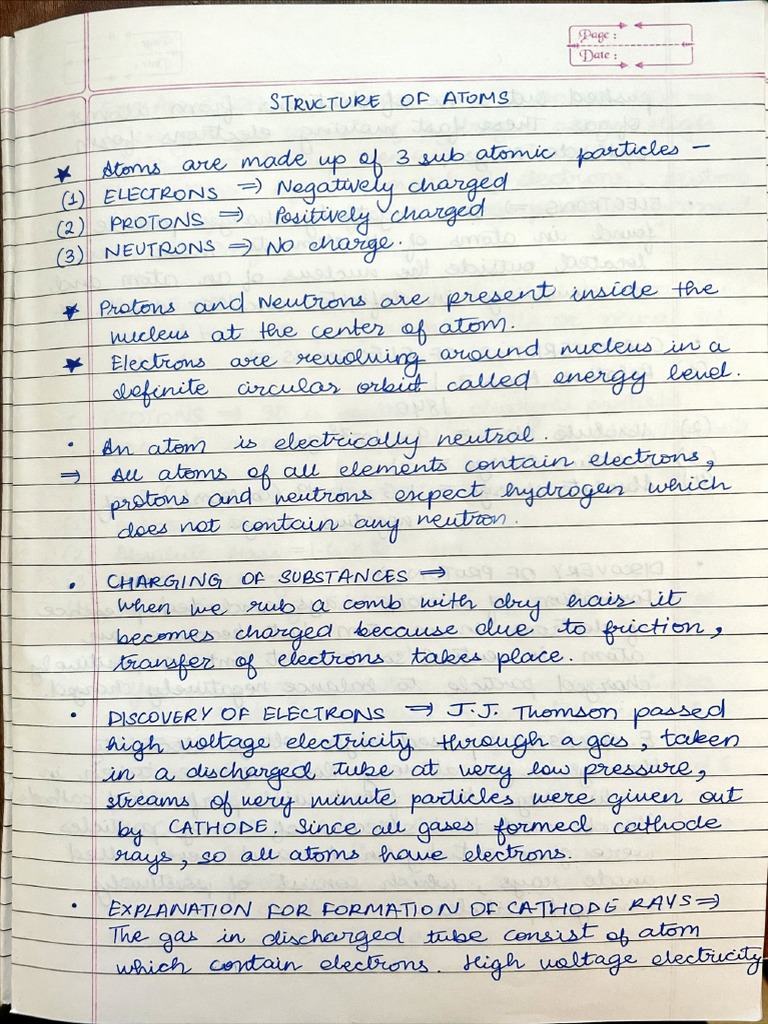 Page :
Date :
STRUCTURE OF ATOMS
★ Atoms are made up of 3 sub atomic particles –
(1) ELECTRONS ⇒ Negatively charged
(2) PROTONS ⇒ Positively charged
(3) NEUTRONS ⇒ No charge.
★ Protons and Neutrons are present inside the
nucleus at the center of atom.
★ Electrons are revolving around nucleus in a
definite circular orbit called energy level.
• An atom is electrically neutral.
⇒ All atoms of all elements contain electrons,
protons and neutrons expect hydrogen which
does not contain any neutron.
• CHARGING OF SUBSTANCES ⇒
When we rub a comb with dry hair it
becomes charged because due to friction,
transfer of electrons takes place.
• DISCOVERY OF ELECTRONS ⇒ J.J. Thomson passed
high voltage electricity through a gas, taken
in a discharged tube at very low pressure,
streams of very minute particles were given out
by CATHODE. Since all gases formed cathode
rays, so all atoms have electrons.
• EXPLANATION FOR FORMATION OF CATHODE RAYS ⇒
The gas in discharged tube consist of atom
which contain electrons. High voltage electricity